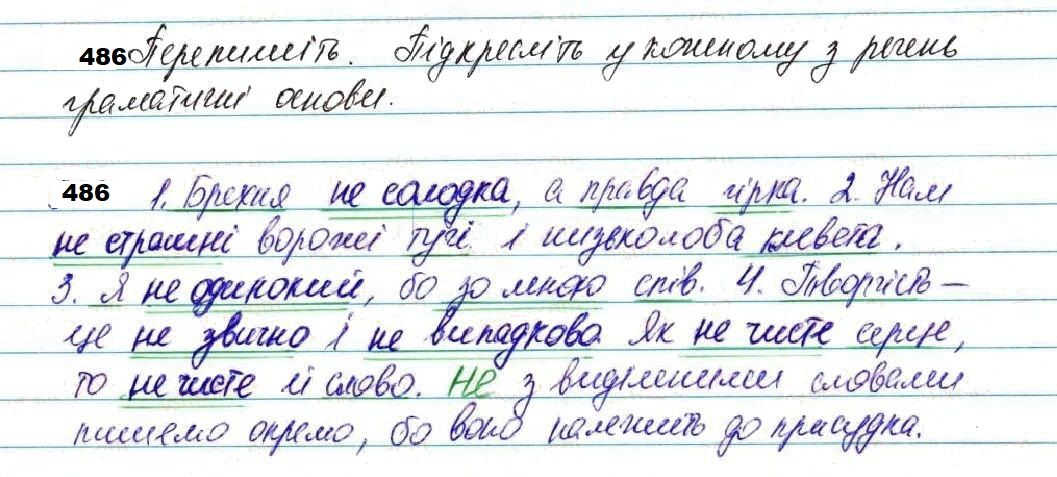 486 Перепишіть. Підкресліть у кожному з речень
граматичні основи.
486 1. Брехня не солодка, а правда гірка. 2. Нам
не страшні ворожі тугі і низьколоба клевета.
3. Я не одинокий, бо зо мною спів. 4. Творчість –
це не звично і не випадково. Як не чисте серце,
то не чисте й слово. НЕ з виділеними словами
пишемо окремо, бо воно належить до присудка.